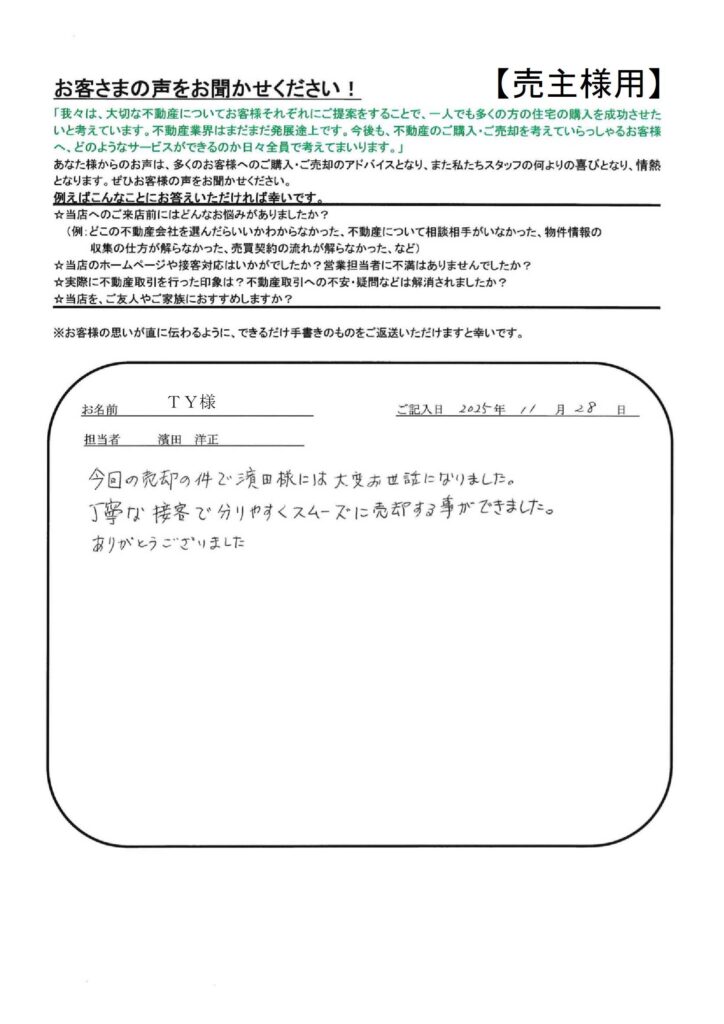 お客さまの声をお聞かせください！
【売主様用】
「我々は、大切な不動産についてお客様それぞれにご提案をすることで、一人でも多くの方の住宅の購入を成功させた
いと考えています。不動産業界はまだまだ発展途上です。今後も、不動産のご購入・ご売却を考えていらっしゃるお客様
へ、どのようなサービスができるのか日々全員で考えてまいります。」
あなた様からのお声は、多くのお客様へのご購入・ご売却のアドバイスとなり、また私たちスタッフの何よりの喜びとなり、情熱
となります。ぜひお客様の声をお聞かせください。
例えばこんなことにお答えいただければ幸いです。
☆当店へのご来店前にはどんなお悩みがありましたか？
（例：どこの不動産会社を選んだらいいかわからなかった、不動産について相談相手がいなかった、物件情報の
収集の仕方が解らなかった、売買契約の流れが解らなかった、など）
☆当店のホームページや接客対応はいかがでしたか？営業担当者に不満はありませんでしたか？
☆実際に不動産取引を行った印象は？不動産取引への不安・疑問などは解消されましたか？
☆当店を、ご友人やご家族におすすめしますか？
※お客様の思いが直に伝わるように、できるだけ手書きのものをご返送いただけますと幸いです。
お名前 ＴＹ様
ご記入日 2025年 11 月 28 日
担当者 濱田 洋正
今回の売却の件で濱田様には大変お世話になりました。
丁寧な接客で分りやすくスムーズに売却する事ができました。
ありがとうございました